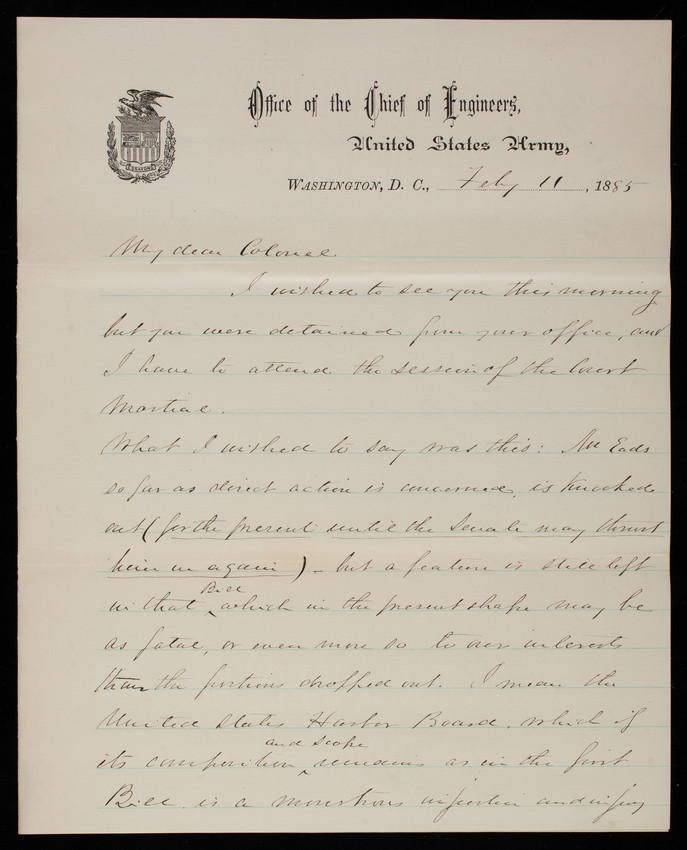 Office of the Chief of Engineers,
United States Army,
WASHINGTON, D. C., Feby 11, 1885
My dear Colonel
I wished to see you this morning
but you were detained from your office, and
I have to attend the session of the Court
Martial.
What I wished to say was this: Mr Eads
so far as direct action is concerned, is knocked
out (for the present until the Senate may thrust
him in again) - but a feature is still left
in that Bill which in the present shape may be
as fatal, or even more so to our interests
than the portions dropped out. I mean the
United States Harbor Board, which if
its composition and scope remains as in the first
Bill is a monstrous injustice and injury